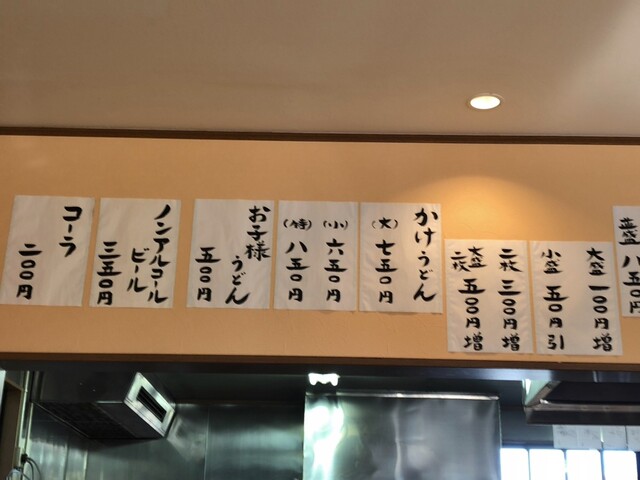 大盛 一〇〇円増
小盛 五〇円引
二枚 三〇〇円増
大盛二枚 五〇〇円増
かけうどん
(大) 七五〇円
(小) 六五〇円
(特) 八五〇円
お子様
うどん
五〇〇円
ノンアルコール
ビール
三五〇円
コーラ
二〇〇円